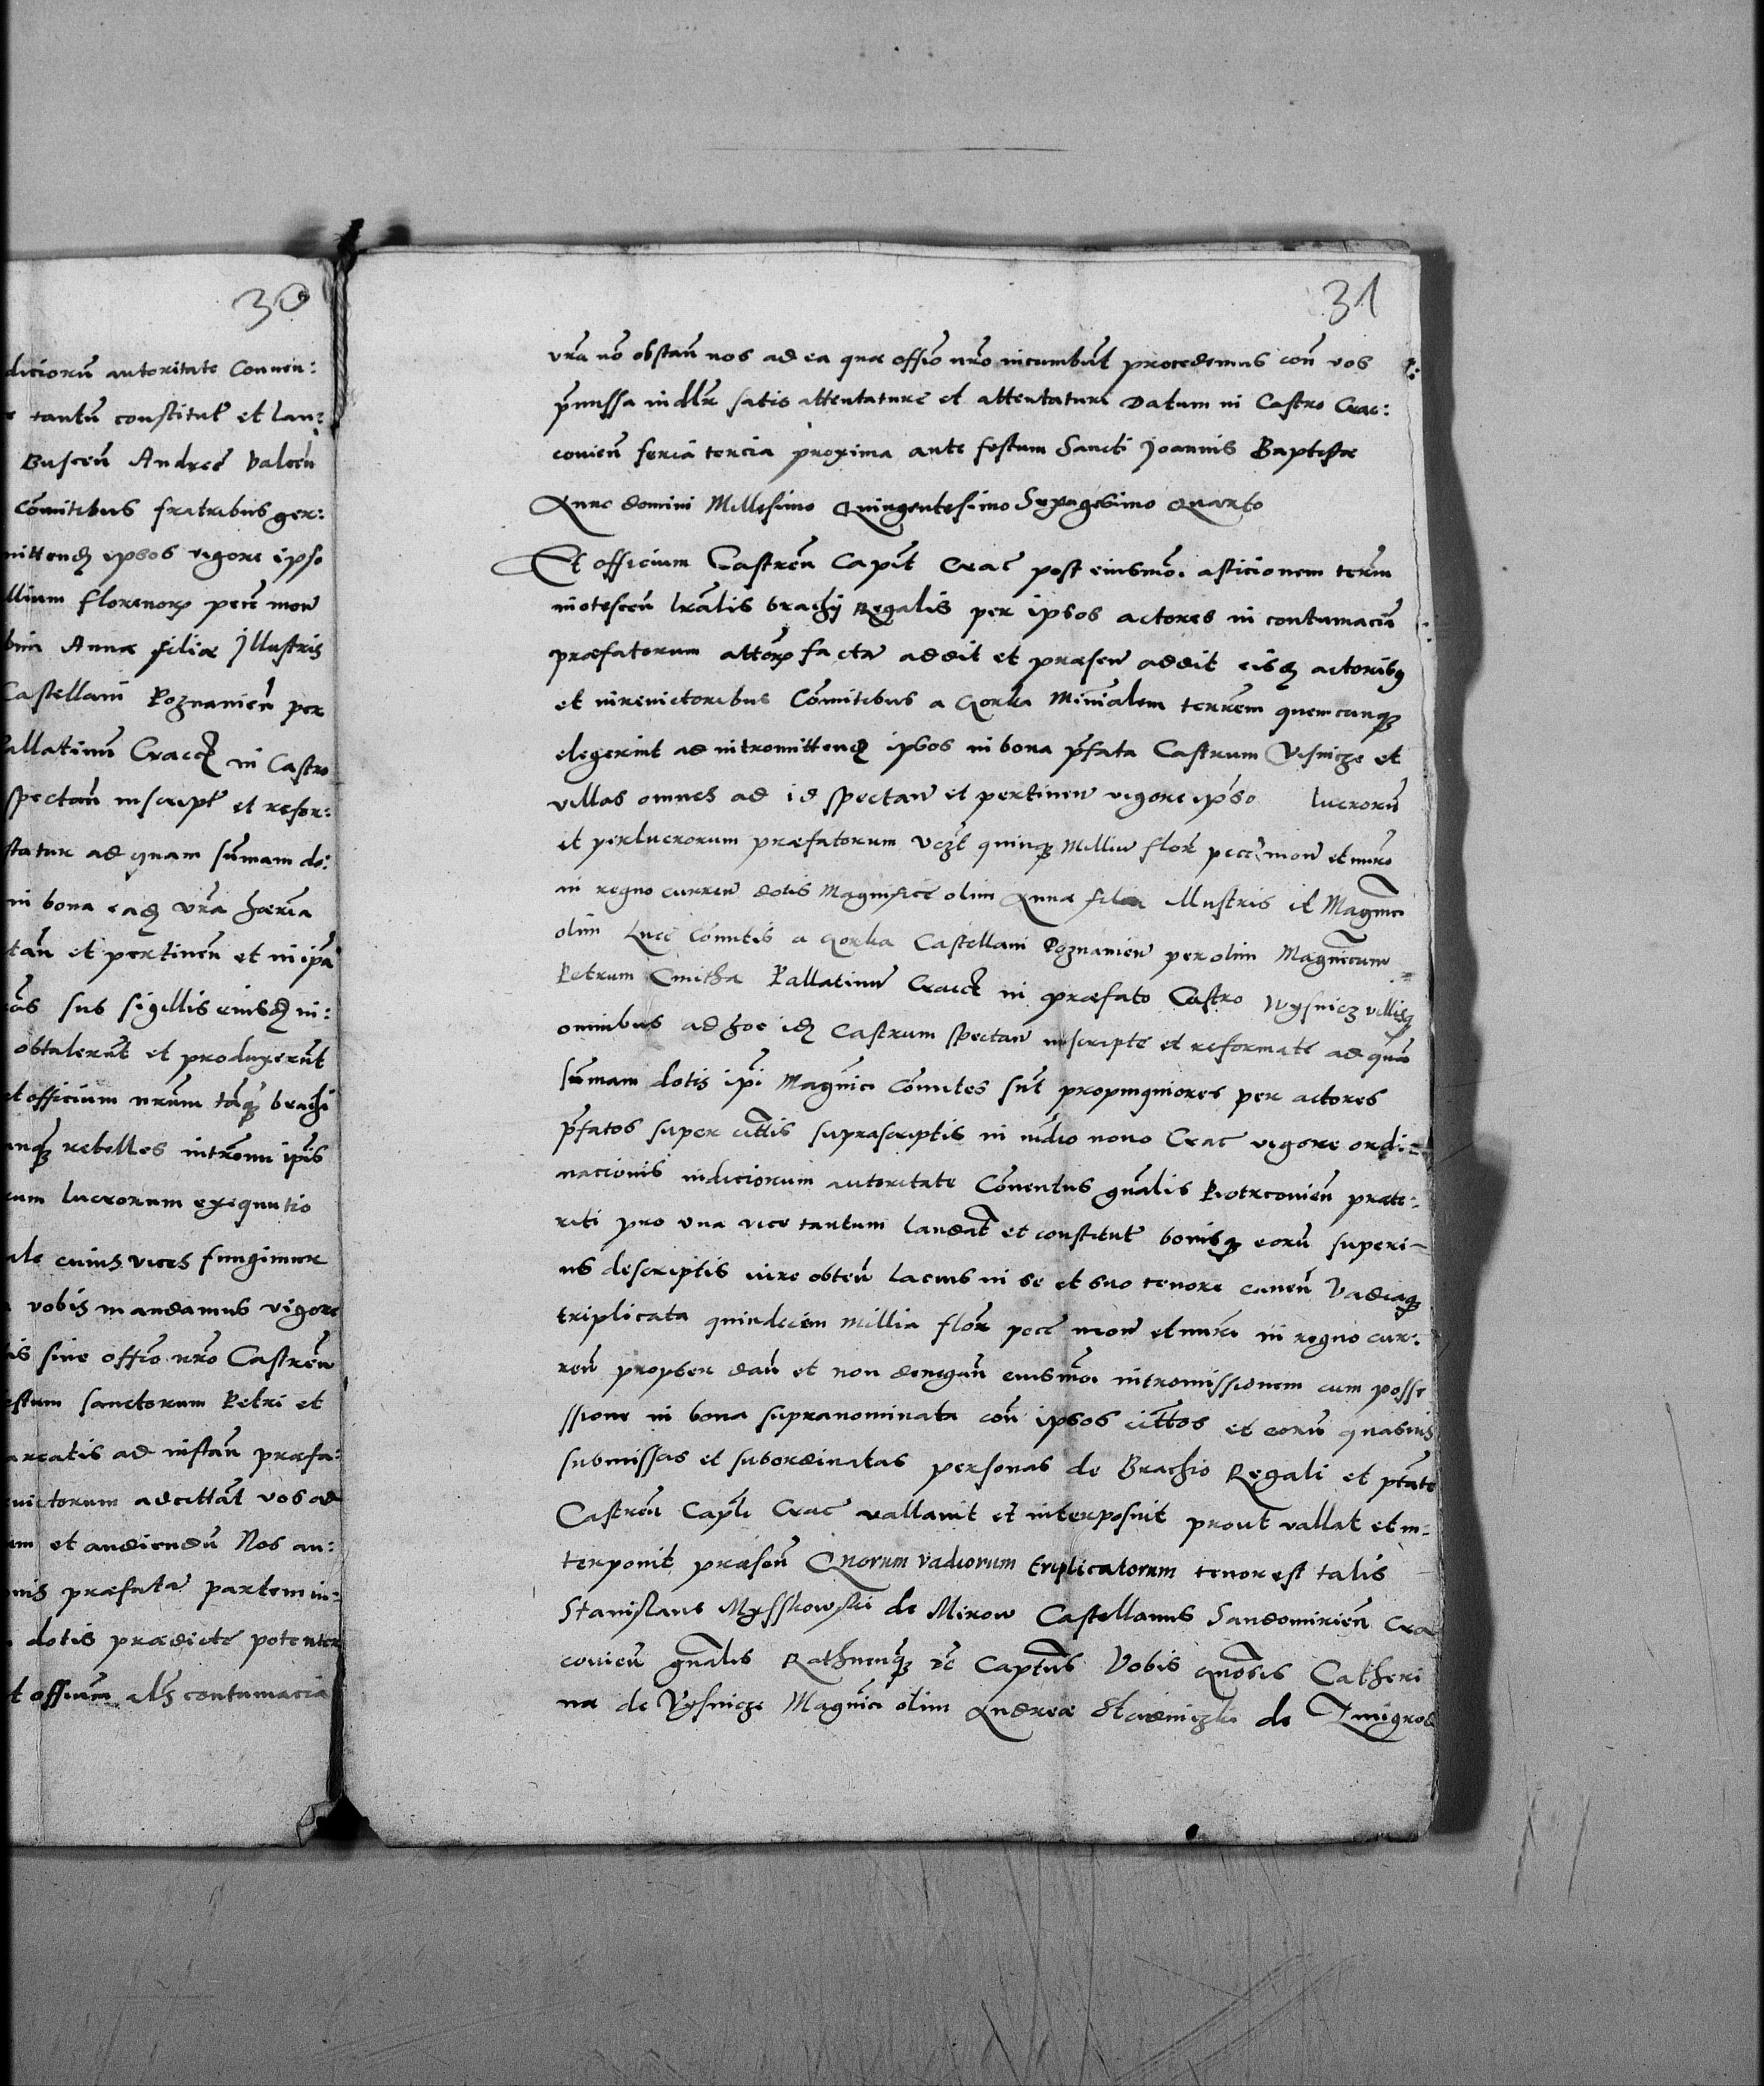 30
diciorū autoritate Conuen:
tantū constitut̃ et Lau:
Buscen̄ Andreę Valcen̄
Com̄itibus fratribus ger:
mittendȝ ipsos vigore ipso
llium florenorȝ pecū mon̄
Annæ filiæ Jllustris
Castellani Poznanien̄ per
Pallatinū Craccȝ in Castro
spectan̄ inscript̃ et refor:
statur ad quam sum̄am do:
in bona eadȝ vrā hæria
tan̄ et pertinen̄ et in ipā
sub sigillis eiusdȝ in:
obtulerūt et produxerūt
et officium nrūm tāqȝ brachi
rebelles introm̄i ip̄is
rum lucrorum exequutio
ale cuius vices fungimur
vobis mandamus vigore
sine offīo nrō Castren̄
estum sanctorum Petri et
ad instan̄ præfa:
adcittāt vos ad
um et audiendū Nos au:
præfatæ partem in:
dotis prædictę potenter
et officiūm als contumacia
31
vrā nō obstan̄ nos ad ea quæ offīo nrō incumbūt procedemus con̄ vos
p̄missa indlr̄ satis attentaturę et attentaturi Datum in Castro Crac:
couien̄ feria tercia proxima ante festum Sancti Joannis Baptistæ
Anno domini Millesimo Quingentesimo Sexagesimo Quarto
Et officium Castren̄ Capit̄ Crac̄ post eiusmōi affictionem term̄
inotescen̄ lrālis brachij Regalis per ipsos actores in contumaciā
præfatorum cittorȝ facta addit et præsen̄ addit eisdȝ actoribȝ
et iurevictoribus Com̄itibus a Gorka Minīalem terrēm quemcunqȝ
elegerint ad intromittendȝ ipsos in bona p̄fata Castrum Visnicze et
villas omnes ad id spectan̄ et pertinen̄ vigore ipso lucrorū
et perlucrorum præfatorum vczt̄ quinqȝ Milliū flor̄ pecū mon̄ et nūro
in regno curren̄ dotis Magnificę olim Annæ filiæ illustris et Magnīci
olim Lucę Com̄itis a Gorka Castellani Poznanien̄ per olim Magnīcum
Petrum Cmitha Pallatinū Craccȝ in præfato Castro Wysnicz villisqȝ
omnibus ad hoc idȝ Castrum spectan̄ inscriptę et reformatę ad quā
sum̄am dotis ip̄i Magnīci Com̄ites sūt propinquiores per actores
p̄fatos super cittīs suprascriptis in iudīo nouo Crac̄ vigore ordi=
nacionis iudiciorum autoritate Conuentus gn̄alis Piotrcouien̄ præte:
riti pro vna vice tantum laudat̄ et constitut̄ bonisqȝ eorū superi-
us descriptis iure obten̄ lacius in se et suo tenore canen̄ Vadiaqȝ
triplicata quindecim millia flor̄ pecū mon̄ et nūri in regno cur:
ren̄ propter dan̄ et non denegan̄ eiusmōi intromissionem cum posse
ssione in bona supranominata con̄ ipsos cittōs et eorū quasuis
submissas et subordinatas personas de Brachio Regali et ptāte
Castren̄ Capīti Crac̄ vallauit et interposuit prout vallat et in=
terponit præsen̄ Quorum vadiorum triplicatorum tenor est talis
Stanislaus Mysskowski de Mirow Castellanus Sandomirien̄ Cra
couien̄ gn̄alis Rathnenqȝ ꝛc̄ Captn̄s Vobis Gnōsis Catheri
na de Vysnicze Magnīci olim Andreæ Stadniczki de Zmigrod